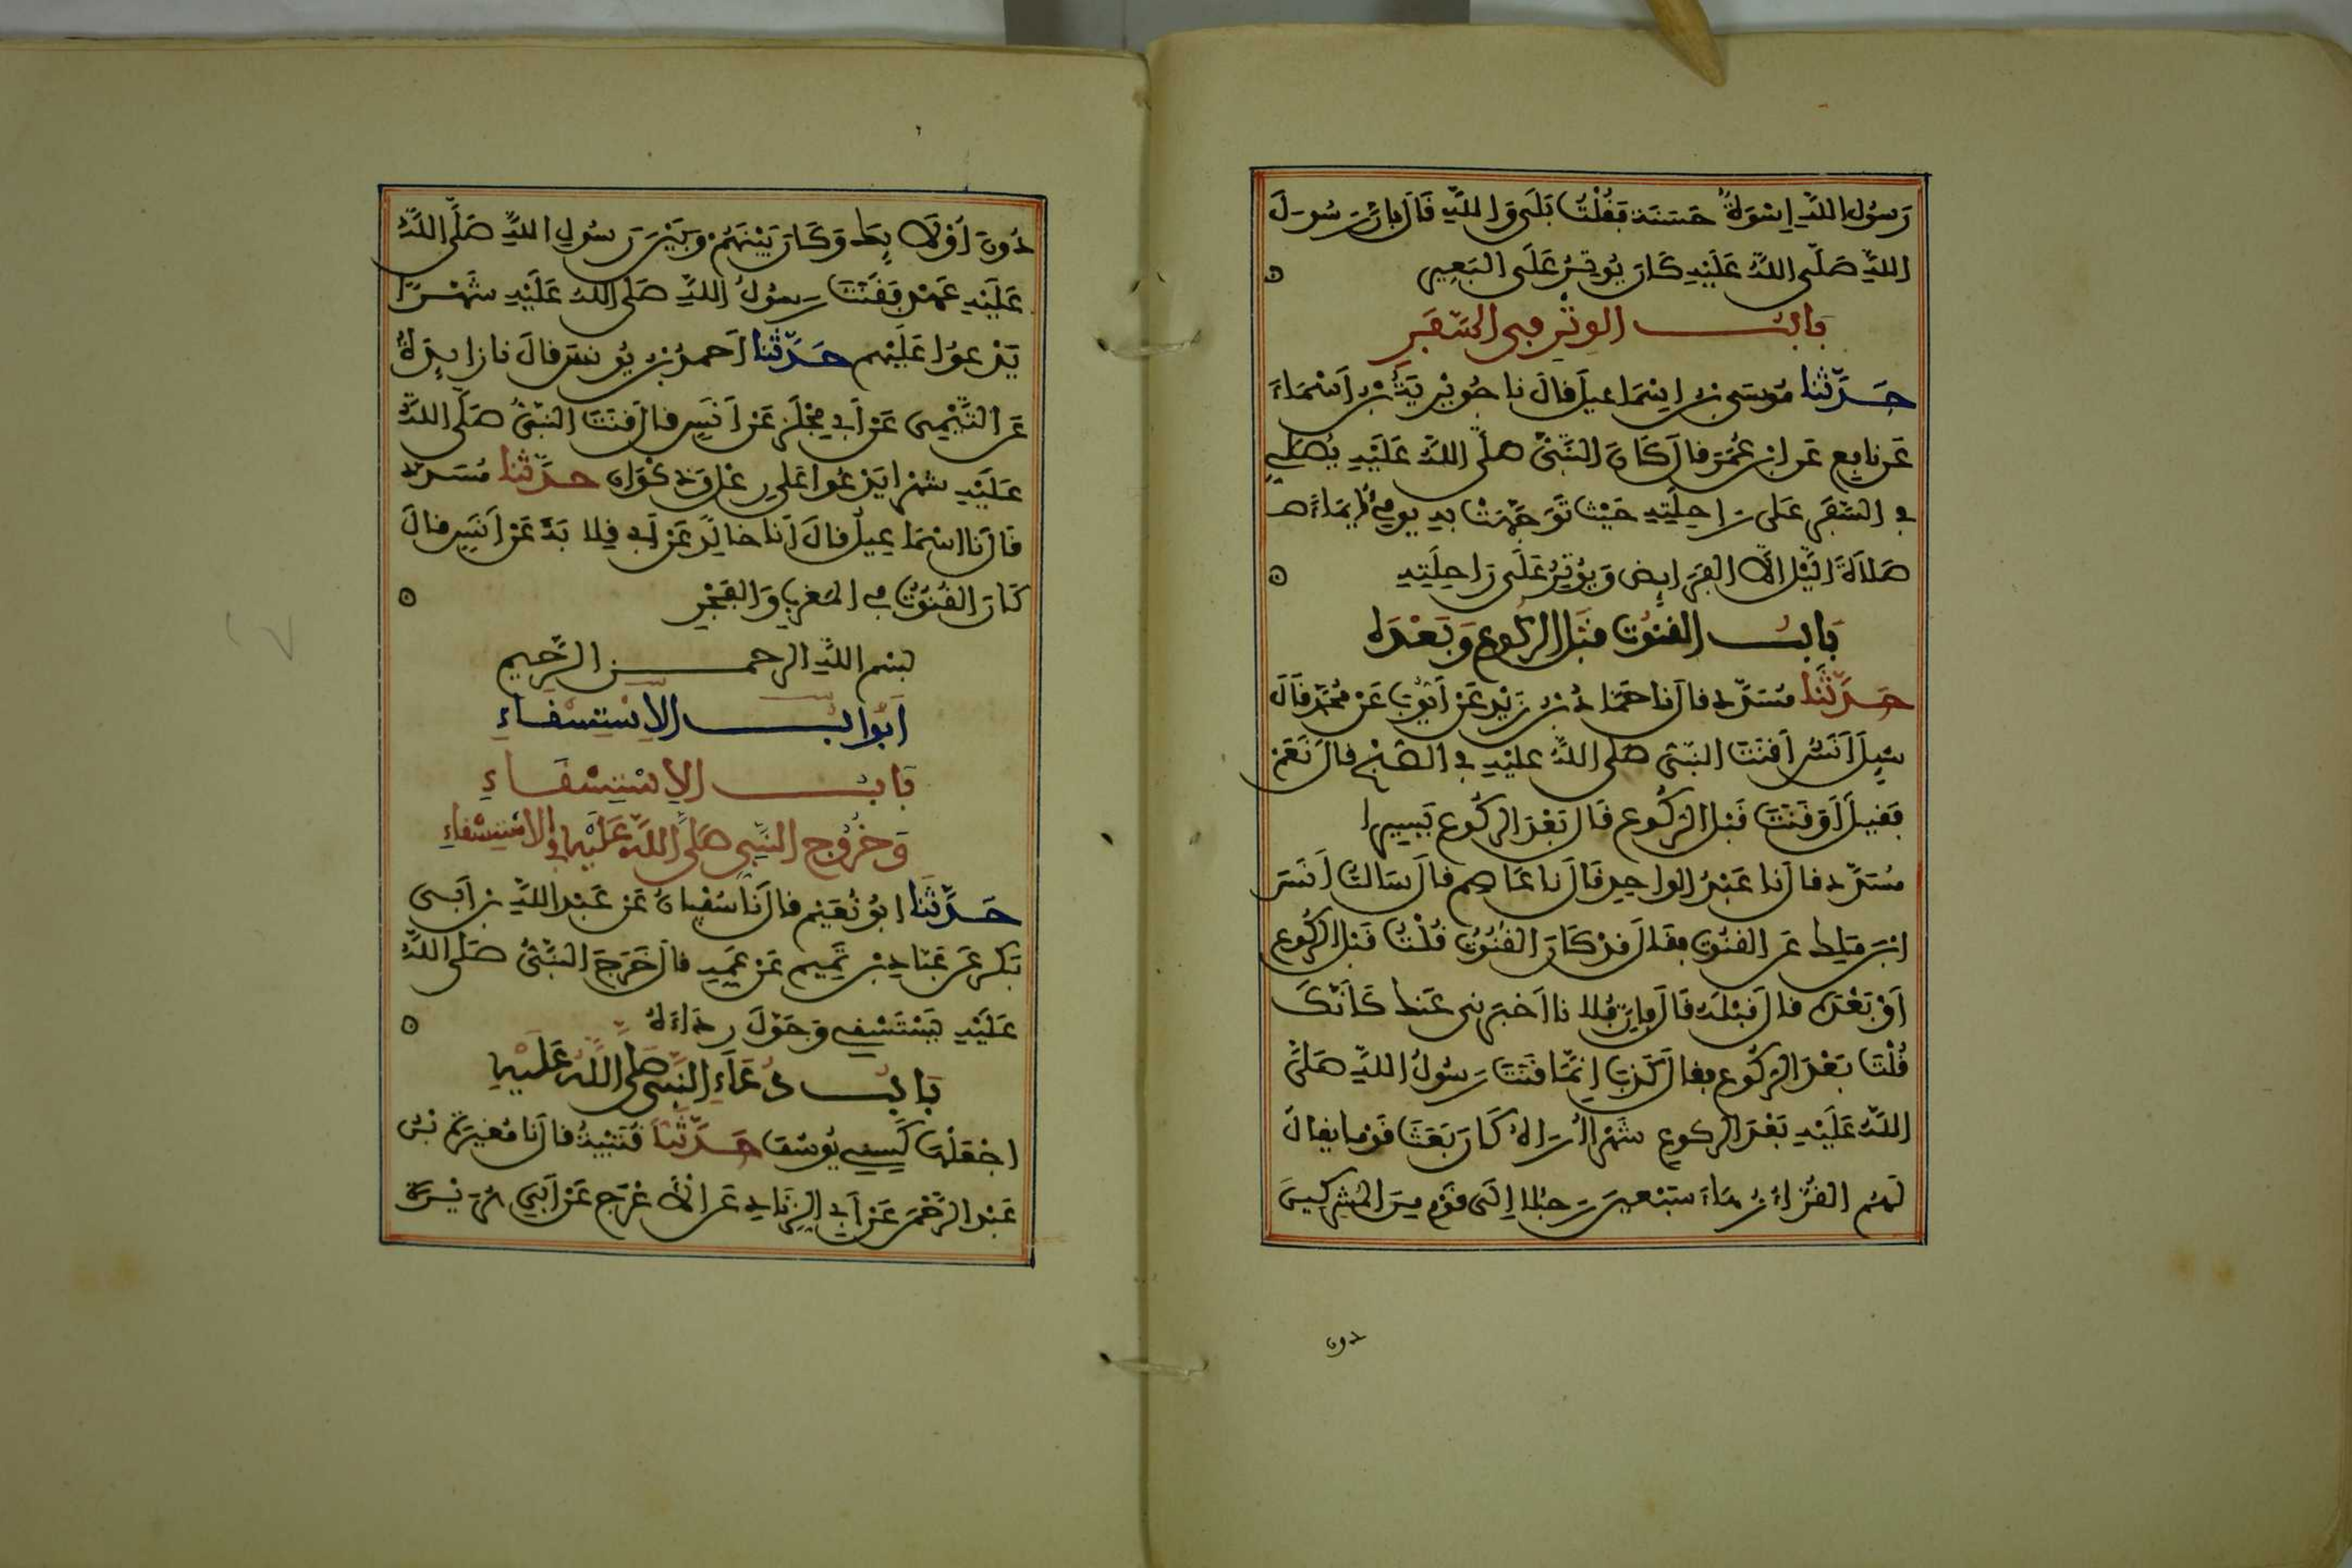 رَسُولِ اللَّهِ إِسْوَةٌ حَسَنَة فَقُلْتُ بَلَى وَاللَّهِ قَالَ فَإِنَّ رَسُولَ
اللَّهِ صَلَّى اللَّهُ عَلَيْهِ كَانَ يُوتِرُ عَلَى الْبَعِيرِ
بَابُ الوِتْرِ فِي السَّفَرِ
حَدَّثَنَا مُوسَى بن إِسْمَاعِيلَ قالَ نا جُوَيْرِيَةُ بن أَسْمَاءَ
عَن نافِعٍ عَنِ ابن عُمَرَ قالَ كَانَ النَّبِيُّ صلَّى اللَّهُ عَلَيْهِ يُصَلِّي
فِي السَّفَرِ عَلَى رَاحِلَتِهِ حَيْثُ تَوَجَّهَتْ بِهِ يومِئُ إِيمَاءً
صَلاَةَ اللَّيْلِ إِلاَّ الفَرَايِضَ وَيُوتِرُ عَلَى رَاحِلَتِهِ
بَابُ القُنُوتِ قَبْلَ الرُّكُوعِ وَبَعْدَهُ
حَدَّثَنَا مُسَدَّد قالَ نا حَمَّادُ بن زَيْدٍ عَنْ أَيُّوبَ عَنْ مُحَمَّدٍ قَالَ
سُيِلَ أَنَسٌ أَقَنَتَ النَّبِيُّ صَلَّى اللَّهُ عَلَيْهِ فِي الصُّبْحِ قالَ نَعَمْ
فَقِيلَ أَوَقَنَتَ قَبْلَ الرُّكُوعِ قَالَ بَعْدَ الرُّكُوعِ يَسِيرًا
مُسَدَّد قالَ نا عَبْدُ الواحِدِ قَالَ نا عَاصِم قالَ سَالتُ أَنَسَ
ابْنَ مَلِك عَنِ القُنُوتِ فقَالَ قَدْ كَانَ القُنُوتُ قُلْتُ قَبْلَ الرُّكُوعِ
أَوْ بَعْدَهُ قالَ قَبْلَهُ قَالَ فَإِنَّ فُلانا أَخْبَرَنِي عَنكَ كَأَنَّكَ
قُلْتَ بَعْدَ الرُّكُوعِ فقالَ كَذَبَ إِنَّمَا قَنَتَ رَسُولُ اللَّهِ صَلَّى
اللَّهُ عَلَيْهِ بَعْدَ الركوعِ شَهْرًا أُرَاهُ كَانَ بَعَثَ قَوْما يقالُ
لَهُم القُرَّاءُ زُهَاءَ سَبْعِينَ رَجُلا إِلَى قَوْمٍ مِنَ الْمُشْرِكِينَ
دون
دُونَ أُوْلَائِكَ وَكَانَ بَيْنَهُمْ وَبَيْنَ رَسُولِ اللَّهِ صَلَّى اللَّهُ
عَلَيْهِ عَهْد فَقَنَتَ رَسُولُ اللَّهِ صَلَّى اللَّهُ عَلَيْهِ شَهْرًا
يَدْعُوا عَلَيْهِم حَدَّثَنَا أَحمدُ بن يُونسَ قالَ نا زَايِدَةُ
عَنِ التَّيْمِي عَنْ أَبِي مِجْلَزٍ عَنْ أَنَسٍ قالَ قَنَتَ النَّبِيُّ صَلَّى اللَّهُ
عَلَيْهِ شهْرا يَدْعُوا عَلَى رِعْل وَذَكْوَان حَدَّثَنَا مُسَدَّد
قَالَ نا اسْمَاعِيلُ قالَ أَنا خالِدٌ عَنْ أَبِي قِلابَةَ عَنْ أَنَسٍ قالَ
كَانَ القُنُوتُ فِي المَغْرِبِ وَالفَجْرِ
بِسْمِ اللَّهِ الرحمن الرَّحِيمِ
أَبْوَابُ الاِسْتِسْقَاءِ
بَابُ الاِسْتِسْقَاءِ
وَخُرُوجِ النَّبِيِّ صَلَّى اللَّهُ عَلَيْهِ فِي الاِسْتِسْقَاءِ
حَدَّثَنَا ابُو نُعَيْم قالَ نَا سُفْيَانُ عَنْ عَبْدِ اللَّهِ بن أَبِي
بَكْر عَنْ عَبَّادِ بْنِ تَمِيم عَنْ عَمِّهِ قالَ خَرَجَ النَّبِيُّ صَلَّى اللَّهُ
عَلَيْهِ يَسْتَسْقِي وَحَوَّلَ رِدَاءَهُ
بَابُ دُعَاءِ النَّبِيِّ صَلَّى اللَّهُ عَلَيْهِ
اجْعَلْهَا كَسِنِي يُوسُفَ حَدَّثَنَا قُتَيْبَةُ قالَ نا مُغِيرَةُ بْنُ
عَبْدِ الرَّحْمَنِ عَنْ أَبِي الزِّنَادِ عَنِ الأَعْرَجِ عَنْ أَبِي هُرَيْرَةَ